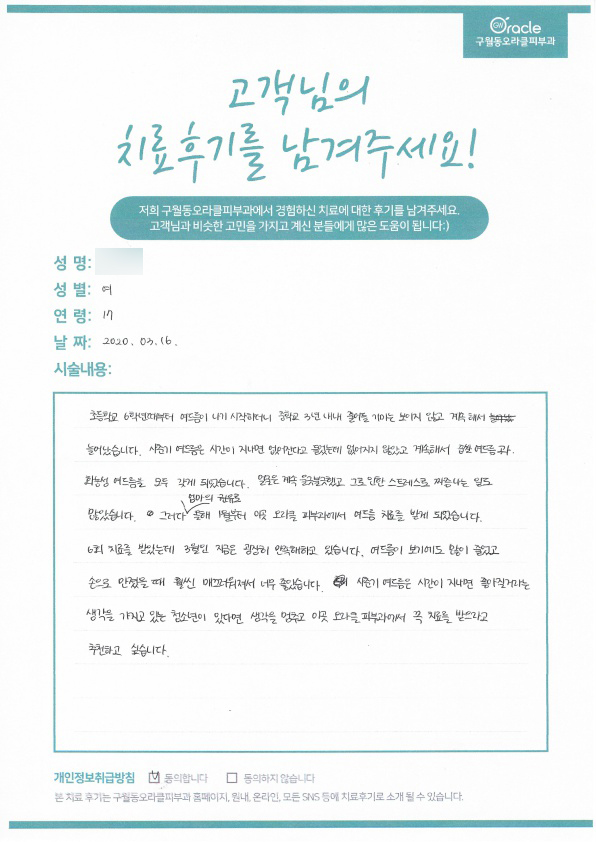 Oracle
구월동오라클피부과
고객님의
치료후기를 남겨주세요!
저희 구월동오라클피부과에서 경험하신 치료에 대한 후기를 남겨주세요.
고객님과 비슷한 고민을 가지고 계신 분들에게 많은 도움이 됩니다:)
성 명:
성 별: 여
연 령: 17
날 짜: 2020. 03. 16.
시술내용:
초등학교 6학년때부터 여드름이 나기 시작하더니 중학교 3년 내내 줄어들 기미는 보이지 않고 계속 해서
늘어났습니다. 사춘기 여드름은 시간이 지나면 없어진다고 들었는데 없어지지 않았고 계속해서 여드름과
화농성 여드름을 모두 갖게 되었습니다. 얼굴은 계속 울긋불긋했고 그로 인한 스트레스로 짜증나는 일도
엄마의 권유로
많았습니다. 그러다 올해 1월부터 이곳 오라클 피부과에서 여드름 치료를 받게 되었습니다.
6회 치료를 받았는데 3월인 지금은 굉장히 만족해하고 있습니다. 여드름이 보기에도 많이 줄었고
손으로 만졌을 때 훨씬 매끄러워져서 너무 좋았습니다. 사춘기 여드름은 시간이 지나면 좋아질거라는
생각을 가지고 있는 청소년이 있다면 생각을 멈추고 이곳 오라클 피부과에서 꼭 치료를 받으라고
추천하고 싶습니다.
개인정보취급방침 ☑ 동의합니다 ☐ 동의하지 않습니다
본 치료 후기는 구월동오라클피부과 홈페이지, 원내, 온라인, 모든 SNS 등에 치료후기로 소개 될 수 있습니다.